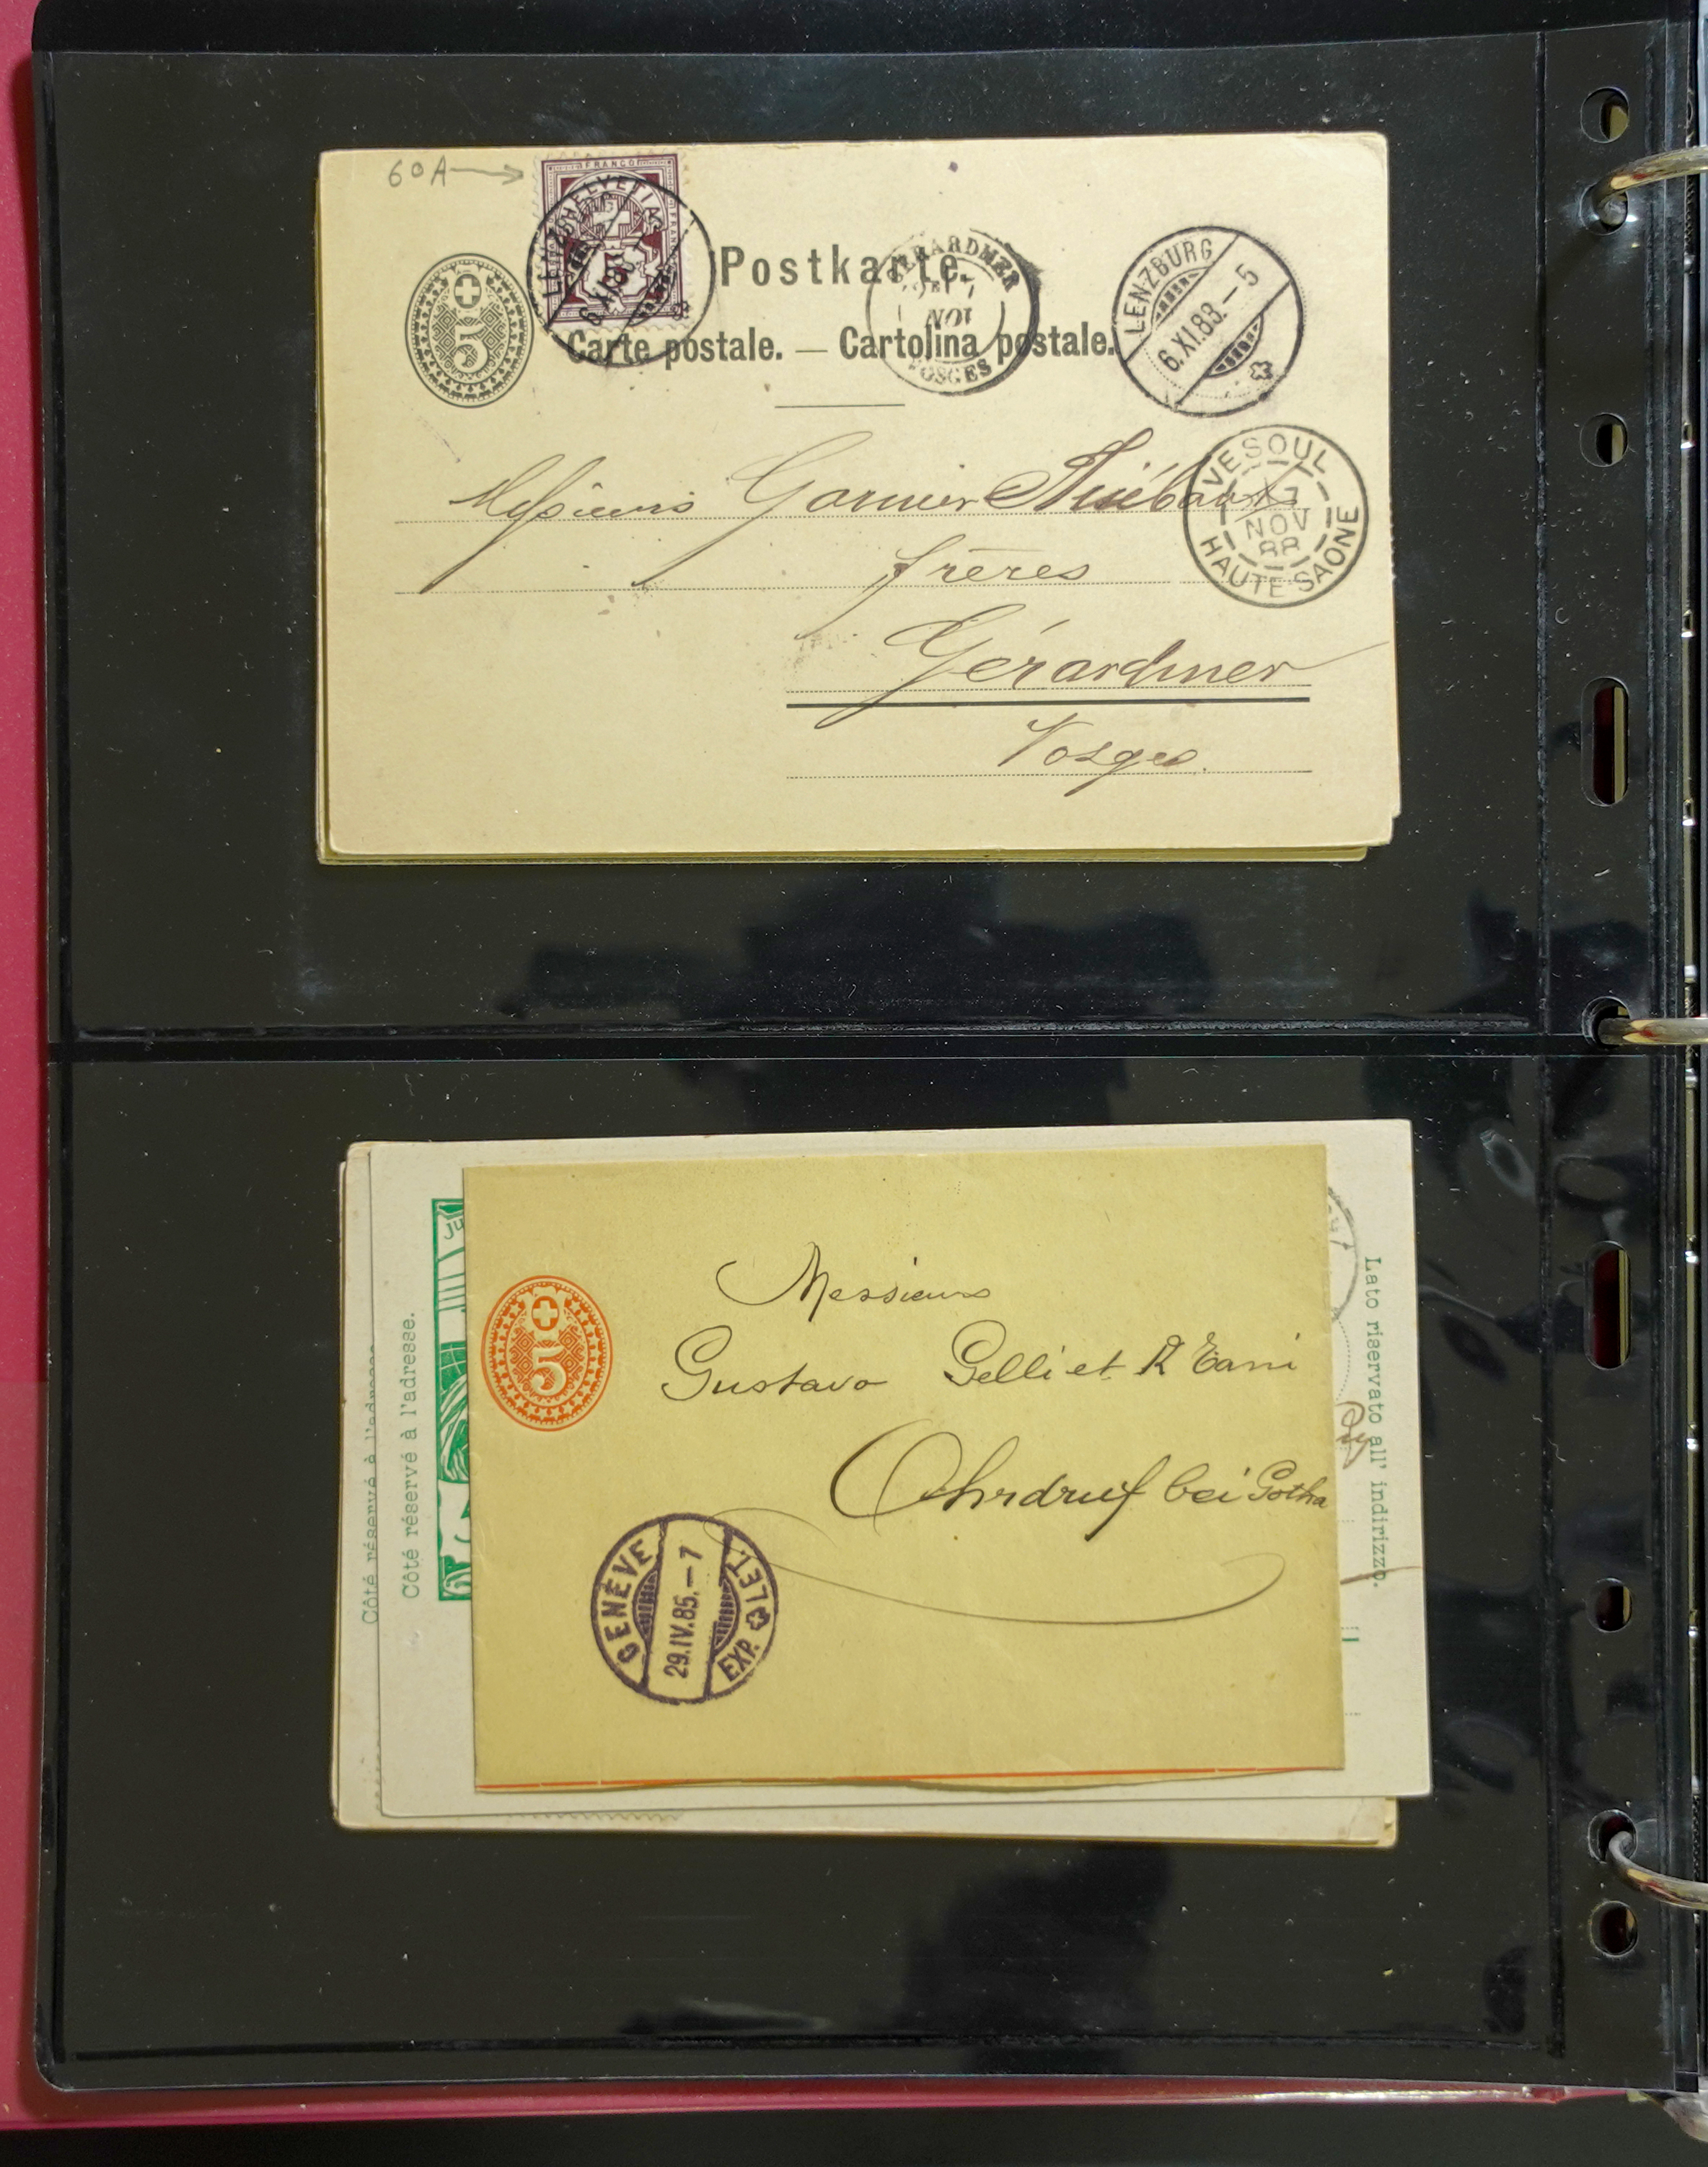 60A
FRANCO
HELVETIA
FRAN
LENZBURG
6.XI.8
5
Postkarte.
Carte postale. — Cartolina postale.
GERARDMER
7
NOV
VOSGES
LENZBURG
6.XI.88.–5
VESOUL
17
NOV
88
HAUTE-SAONE
Messieurs Garnier Thiébaux
frères
Gérardmer
Vosges.
Côté réservé à l'adresse
Côté réservé à l'adresse.
5
Messieurs
Gustavo Gelli et R Tani
Ohrdruf bei Gotha
GENÈVE
29.IV.85.–7
EXP. LET.
Lato riservato all' indirizzo.